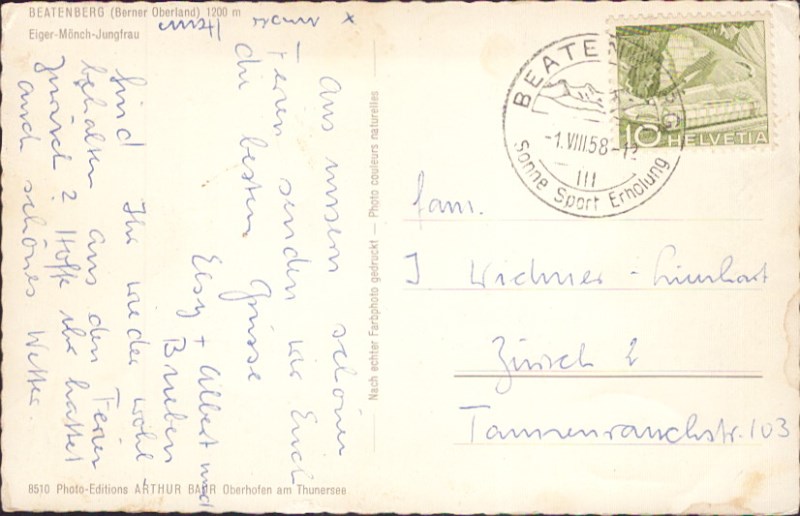 BEATENBERG (Berner Oberland) 1200 m
Eiger-Mönch-Jungfrau
Aus unsern schönen
Ferien senden wir Euch
die besten Grüsse
Elsy + Albert und
Buben
Sind Ihr wieder wohl
behalten aus den Ferien
zurück? Hoffe ihr hattet
auch schönes Wetter.
8510 Photo-Editions ARTHUR BAUR Oberhofen am Thunersee
Nach echter Farbphoto gedruckt — Photo couleurs naturelles
BEATENBERG
-1.VIII.58-12
III
Sonne Sport Erholung
10 HELVETIA
Fam.
J Widmer - Linhart
Zürich 2
Tannenrauchstr. 103